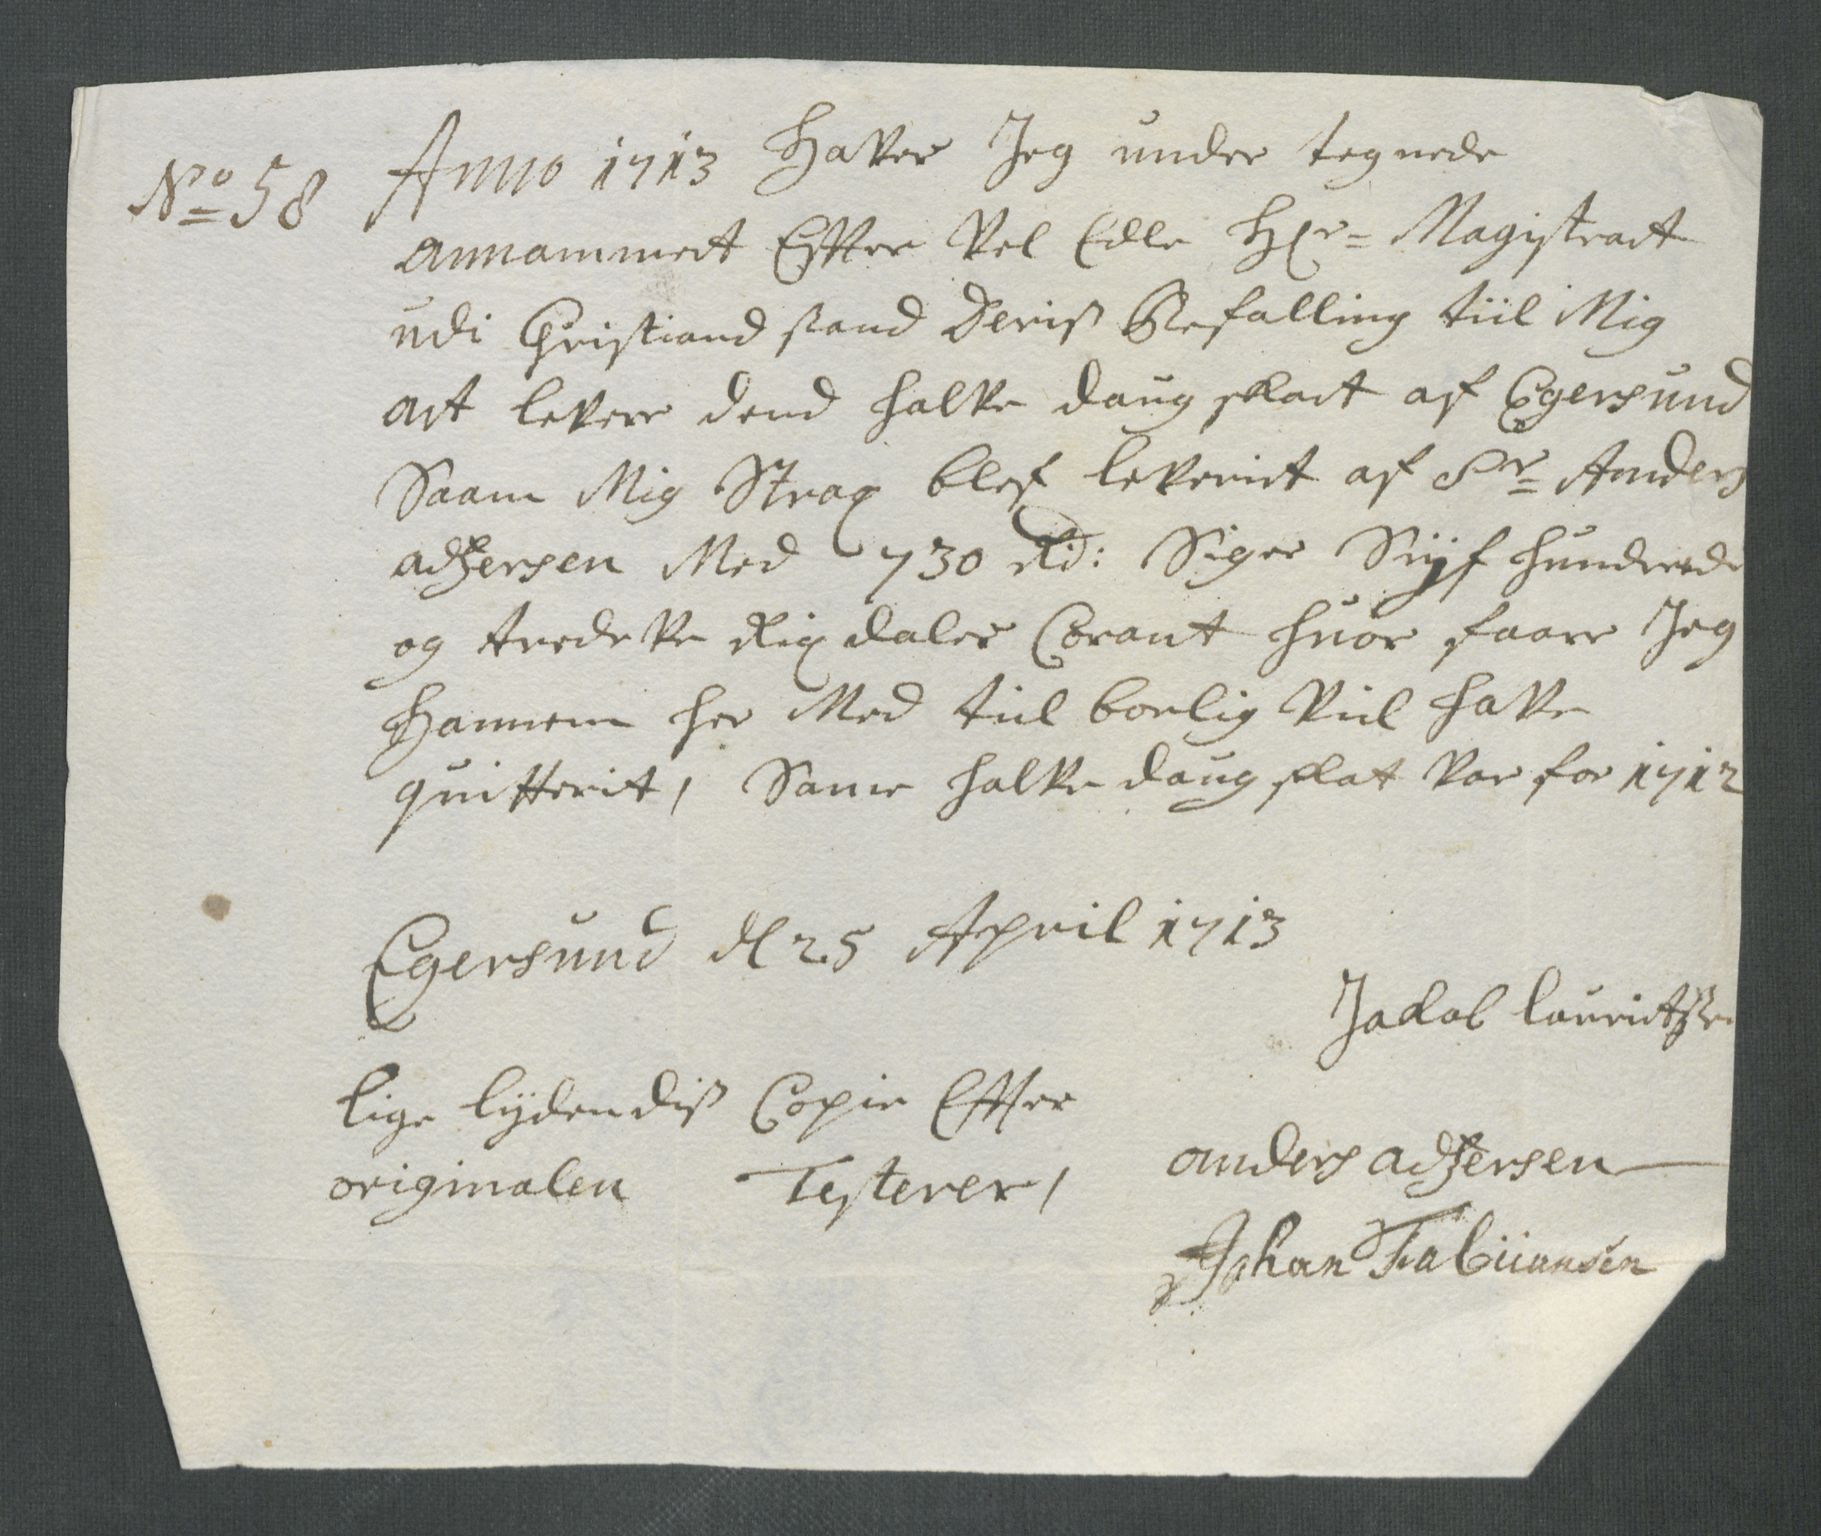 No 58
Anno 1713 Haver Jeg under tegnede
annammet Effter Vel Edle Hr= Magistraat
udi Christiand sand Deris Befalling tiil Mig
at levere dend halve daug skat af Egersund
Saam Mig Strax blef leverit af Sr= Anders
adzersen Med 730 Rd: Siger Syf hunderede
og tredeve Rix daler Corant huor faare Jeg
Hannem her Med tiil borlig Viil have
quitterit, Same halve daug skat var for 1712
Egersund d 25 April 1713
Jacob lauridtzen
lige lydendis Copie Effter
originalen Testerer,
anders adzersen
Johan Fabiiansen